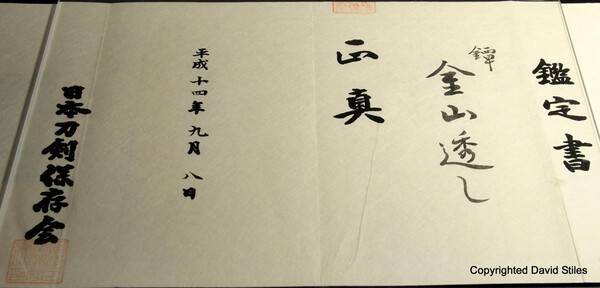 鑑定書
鐔
金山透し
正真
平成十四年九月八日
日本刀剣保存会
Copyrighted David Stiles